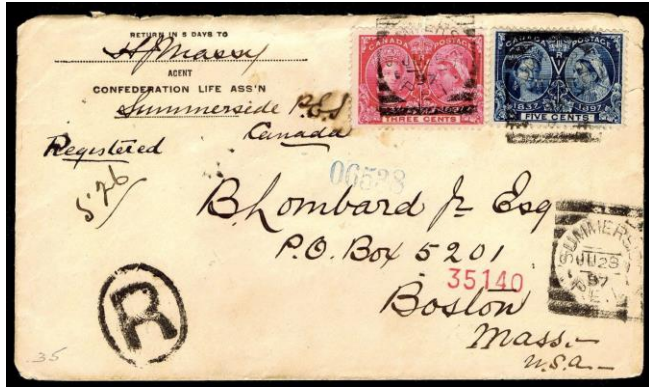 RETURN IN 5 DAYS TO
HJ Massy
AGENT
CONFEDERATION LIFE ASS'N
Summerside P.E.I
Canada
Registered
526
CANADA POSTAGE
THREE CENTS
CANADA POSTAGE
1837 1897
FIVE CENTS
06538
B Lombard Jr Esq
P.O. Box 5201
35140
Boston
Mass.
U.S.a.
SUMMERS
JU 29
97
P.E.I.
R
35